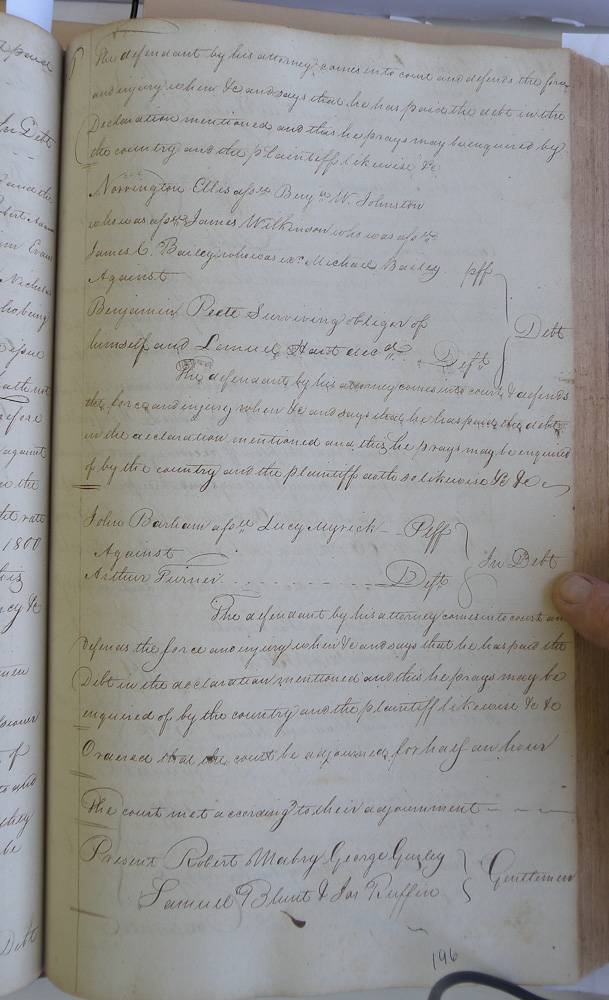 The defendant by his attorney comes into court and defends the force
and injury when &c and says that he has paid the debt in the
Declaration mentioned and this he prays may be enquired by
the country and the plaintiff likewise &c
Norrington Ellis assee Benja W. Johnston
who was assee James Wilkinson who was assee
James C. Bailey who was exr Michael Bailey plff
Against
Debt
Benjamin Peete Surviving obligor of
himself and Lemuel Hart decd. Deft
The defendant by his attorney comes into court & defends
the force and injury when &c and says that he has paid the debt
in the declaration mentioned and this he prays may be enquired
of by the country and the plaintiff doth so likewise &c &c
John Barham assee Lucy Myrick Plff
Against
In Debt
Arthur Turner Deft
The defendant by his attorney comes into court and
defends the force and injury when &c and says that he has paid the
Debt in the declaration mentioned and this he prays may be
enquired of by the country and the plaintiff likewise &c &c
Ordered that the court be adjourned for half an hour
The court met according to their adjournment
Present Robert Mabry George Gurley
Gentlemen
Samuel Blunt & Jas Ruffin
196